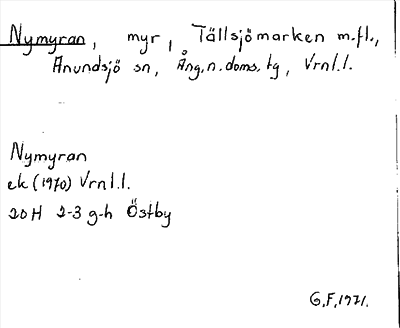 Nymyran, myr, Tällsjömarken m.fl.,
Anundsjö sn, Ång.n.doms.tg, Vrnl.l.
Nymyran
ek (1970) Vrnl.l.
20H 2-3 g-h Östby
G.F. 1971.